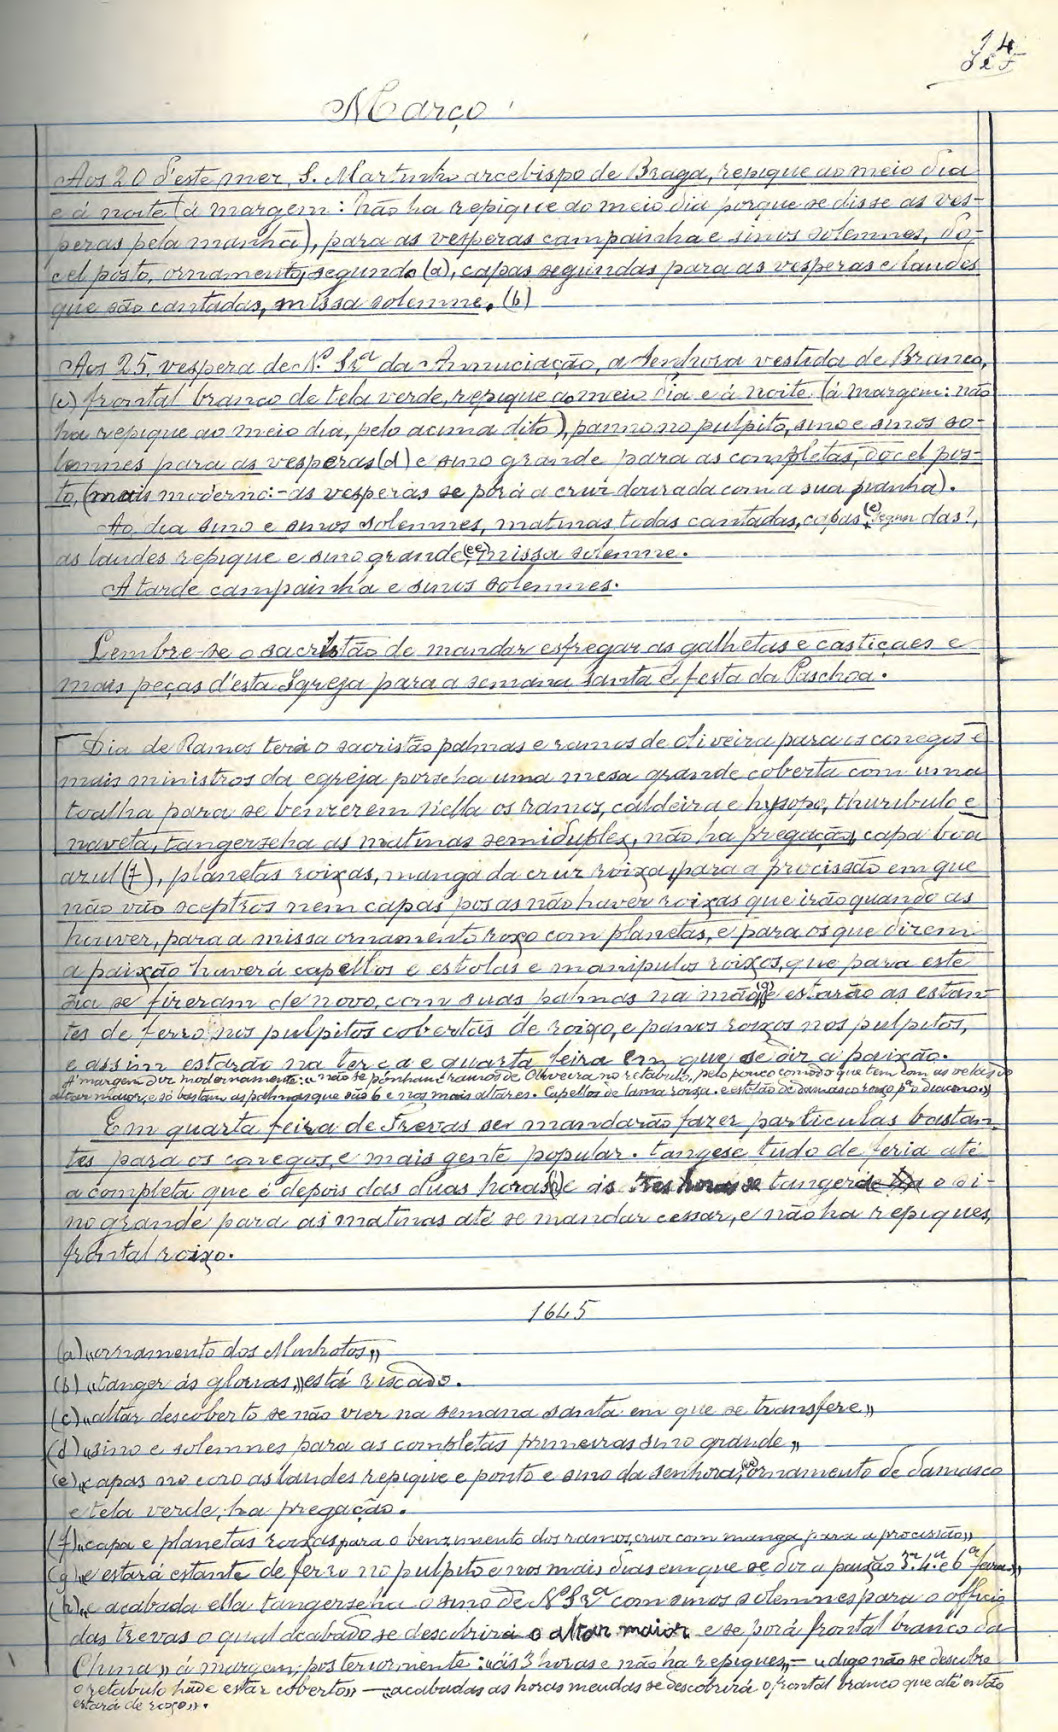 14
Março
Aos 20 d'este mez, S. Martinho arcebispo de Braga, repique ao meio dia
e á noite (á margem: não ha repique ao meio dia porque se disse as ves-
peras pela manhã), para as vesperas campainha e sinos solemnes, do-
cel posto, ornamento, segundo (a), capas segundas para as vesperas e laudes
que são cantadas, missa solemne. (b)
Aos 25, vespera de Nª Srª da Annunciação, a Senhora vestida de Branco,
(c) frontal branco de tela verde, repique ao meio dia e á noite (á margem: não
ha repique ao meio dia, pelo acima dito), panno no pulpito, sino e sinos so-
lemnes para as vesperas (d) e sino grande para as completas, docel pos-
to, (mais moderno: - as vesperas se porá a cruz dourada com a sua pianha).
Ao dia sino e sinos solemnes, matinas todas cantadas, capas (e) segundas?,
as laudes repique e sino grande, (ee) missa solemne.
A tarde campainha e sinos solemnes.
Lembre-se o sacristão de mandar esfregar as galhetas e castiçaes e
mais peças d'esta Igreja para a semana santa e festa da Paschoa.
Dia de Ramos terá o sacristão palmas e ramos de oliveira para os conegos e
mais ministros da egreja porseha uma mesa grande coberta com uma
toalha para se benzerem n'ella os ramos, caldeira e hysope, thuribulo e
naveta, tangerseha as matinas semiduplex, não ha pregação, capa boa
azul (f), planetas roixas, manga da cruz roixa, para a procissão em que
não vão sceptros nem capas por as não haver roixas que irão quando as
houver, para a missa ornamento roxo com planetas, e para os que direm
a paixão haverá capellos e estolas e manipulos roixos, que para este
dia se fizeram de novo, com suas palmas na mão (g) e estarão as estan-
tes de ferro nos pulpitos cobertas de roixo, e panos roixos nos pulpitos,
e assim estarão na terça e quarta feira em que se dir a paixão.
Á margem diz modernamente: "não se ponham ramos de Oliveira no retabulo, pelo pouco comodo que tem com as velas do
altar maior, e só bastam as palmas que são 6 e nos mais altares. Capellos de lama roxa. e estolão de damasco roxo pª o diacono"
Em quarta feira de Trevas se mandarão fazer particulas bastan-
tes para os conegos, e mais gente popular. tangese tudo de feria até
a completa que é depois das duas horas (h) e ás tres horas se tangerá o si-
no grande para as matinas até se mandar cessar, e não ha repiques,
frontal roixo.
1645
(a) "ornamento dos Minhotos"
(b) "tanger ás glorias" está riscado.
(c) "altar descoberto se não vier na semana santa em que se transfere"
(d) "sino e solemnes para as completas primeiras sino grande"
(e) "capas no coro as laudes repique e ponto e sino da senhora, (ee) ornamento de damasco
e tela verde, ha pregação.
(f) "capa e planetas roixas para o benzimento dos ramos, cruz com manga para a procissão"
(g) "e estará estante de ferro no pulpito e nos mais dias em que se dir a paixão 3ª 4ª e 6ª feira"
(h) "e acabada ella tangerseha o sino de Nª Srª com sinos solemnes para o officio
das trevas o qual acabado se descobrirá o altar maior e se porá frontal branco da
China" á margem, posteriormente: "ás 3 horas e não ha repiques" - "digo não se descubra
o retabulo pode estar coberto" - "acabadas as horas meudas se descobrirá o frontal branco que até então
estará de roxo".